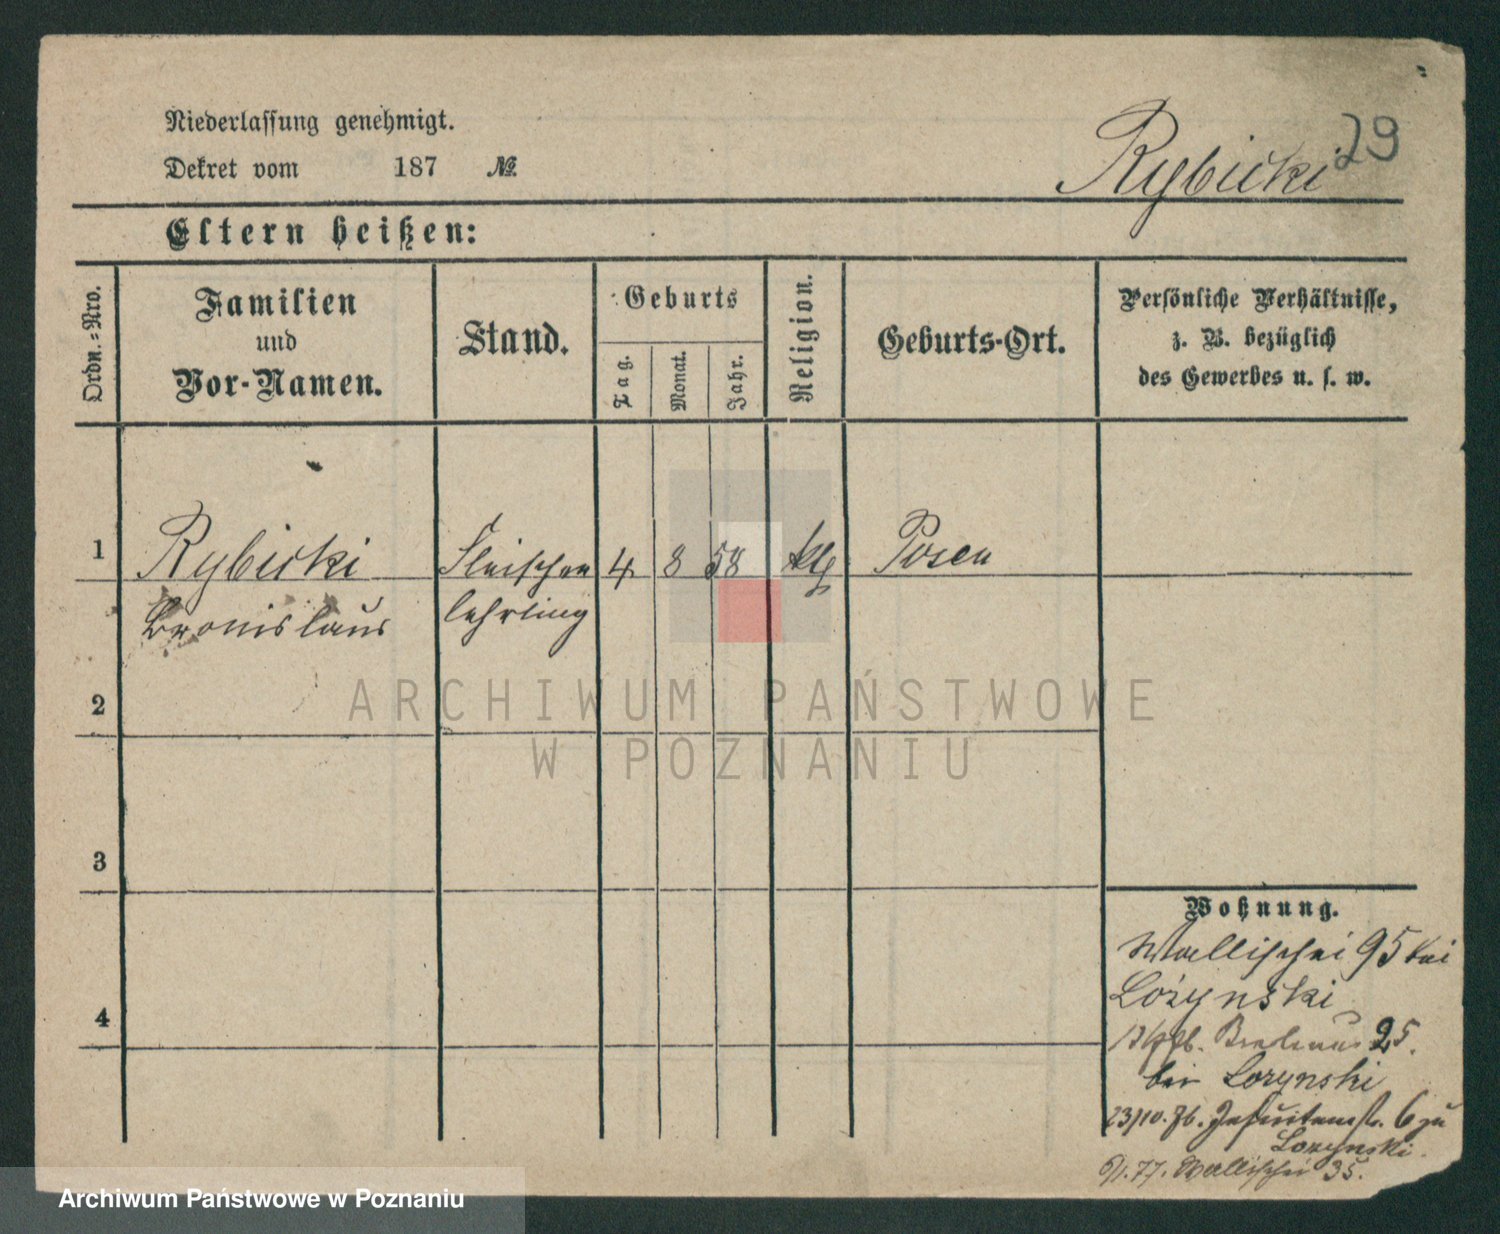 Niederlassung genehmigt.
Dekret vom 187 №
Rybicki 29
Eltern heißen:
Ordn.-Nro.
Familien
und
Vor-Namen.
Stand.
Geburts
Tag.
Monat.
Jahr.
Religion.
Geburts-Ort.
Persönliche Verhältnisse,
z. B. bezüglich
des Gewerbes u. s. w.
1 Rybicki Fleischer 4 8 58 Posen
Bronislaus lehrling
2
3
4
Wohnung.
Wallischei 95 bei
Lożynski
25.
bei Lozynski
23/10. Jesuitenstr. 6 zu
Lozynski.
77. Wallischei 35.
ARCHIWUM PAŃSTWOWE
W POZNANIU
Archiwum Państwowe w Poznaniu